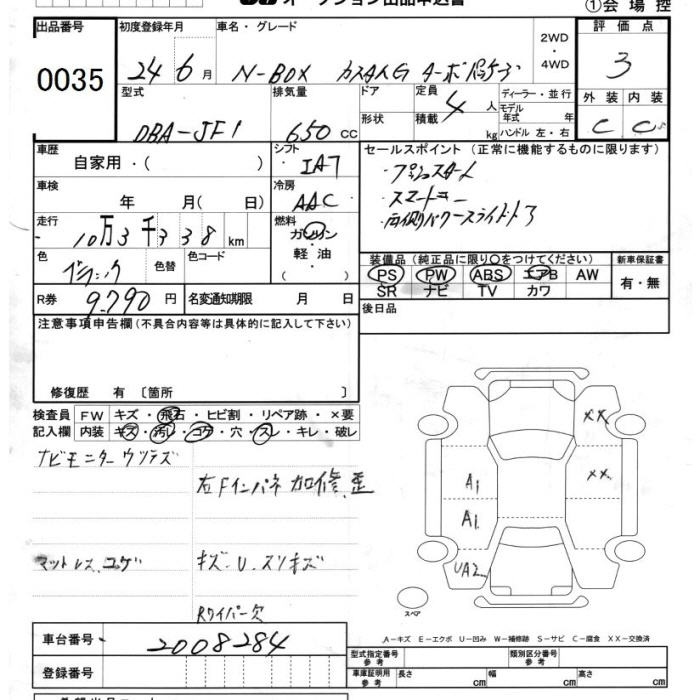 オークション出品申込書
①会場控
出品番号 初度登録年月 車名・グレード 2WD・4WD 評価点
0035 24 6月 N-BOX カスタムG ターボパッケージ 3
型式 排気量 ドア 定員 ディーラー・並行 外装 内装
DBA-JF1 650 CC 形状 積載 4人 kg モデル年式 年 ハンドル 左・右 C C
車歴 シフト セールスポイント (正常に機能するものに限ります)
自家用・( ) IAT ・プッシュスタート
車検 冷房 ・スマートキー
年 月( 日) AAC ・両側パワースライドドア
走行 燃料
10万3千338km ガソリン・軽油・( )
色 色替 色コード 装備品 (純正品に限り〇をつけてください) 新車保証書
ブラック PS PW ABS エアB AW 有・無
SR ナビ TV カワ
R券 9,790円 名変通知期限 月 日 後日品
注意事項申告欄 (不具合内容等は具体的に記入して下さい)
修復歴 有 〔箇所 〕
検査員 FW キズ・飛石・ヒビ割・リペア跡・×要
記入欄 内装 キズ・汚レ・コゲ・穴・スレ・キレ・破レ
ナビモニターウツラズ
右Fインパネ加修、歪
マットレス、コゲ キズ・U、スリキズ
Rワイパー欠
XX
XX
A1
A1
UA2
スペア
A-キズ E-エクボ U-凹み W-補修跡 S-サビ C-腐食 XX-交換済
車台番号 2008284 型式指定番号 参考 類別区分番号 参考
登録番号 車庫証明用 参考 長さ cm 幅 cm 高さ cm